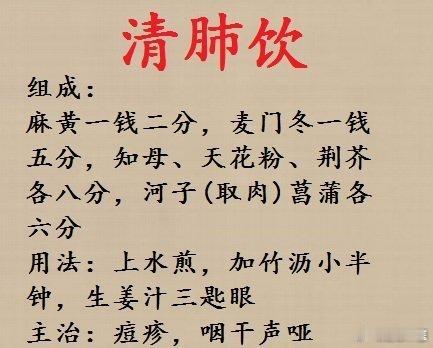 清肺饮
组成：
麻黄一钱二分，麦门冬一钱
五分，知母、天花粉、荆芥
各八分，河子(取肉)菖蒲各
六分
用法：上水煎，加竹沥小半
钟，生姜汁三匙眼
主治：痘疹，咽干声哑